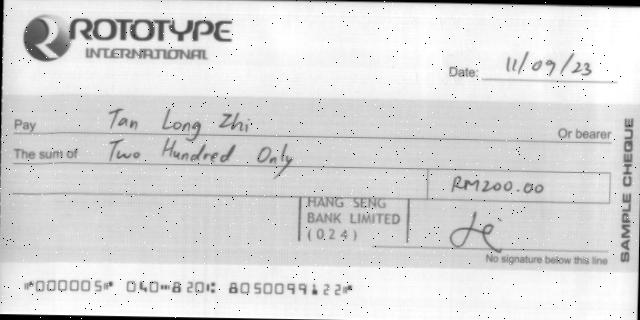 ROTOTYPE
INTERNATIONAL
Date: 11/09/23
Pay Tan Long Zhi Or bearer
The sum of Two Hundred Only
RM200.00
HANG SENG
BANK LIMITED
(024)
No signature below this line
SAMPLE CHEQUE
⑈000005⑈ 040⑉820⑆ 8050099122⑈